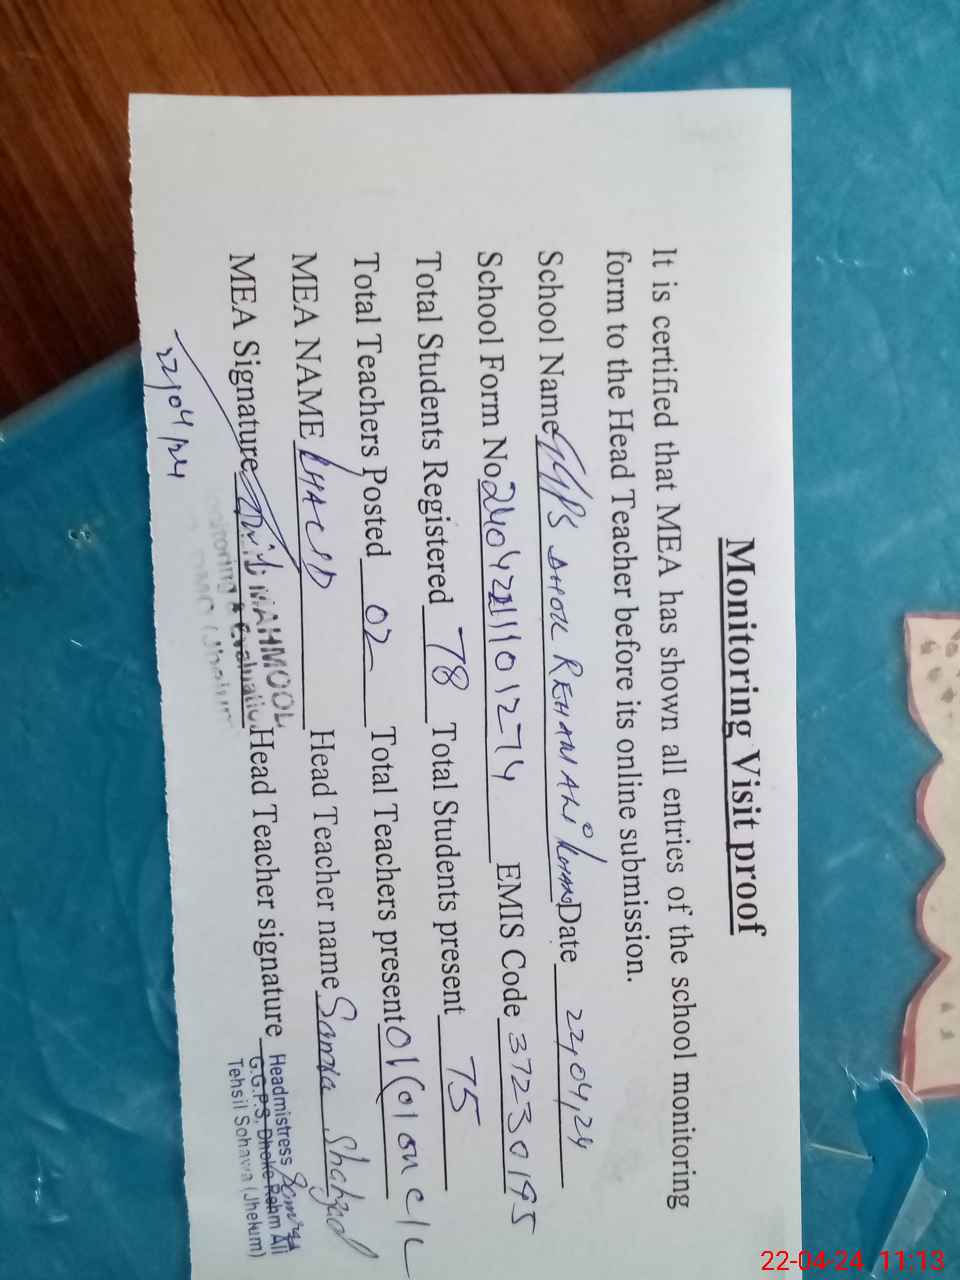 Monitoring Visit proof
It is certified that MEA has shown all entries of the school monitoring
form to the Head Teacher before its online submission.
School Name GGPS DHOK REHAM ALI Date 22,04,24
School Form No. EMIS Code 37230195
Total Students Registered 78 Total Students present 75
Total Teachers Posted 02 Total Teachers present 01 (01 on C/L
MEA NAME Head Teacher name Samia Shahzad
MEA Signature Head Teacher signature
22/04/24
MAHMOOD
Monitoring & Evaluation
DMO (Jhelum
Headmistress
G.G.P.S, Dhoke Rahm Ali
Tehsil Sohawa (Jhelum)
22-04-24 11:13